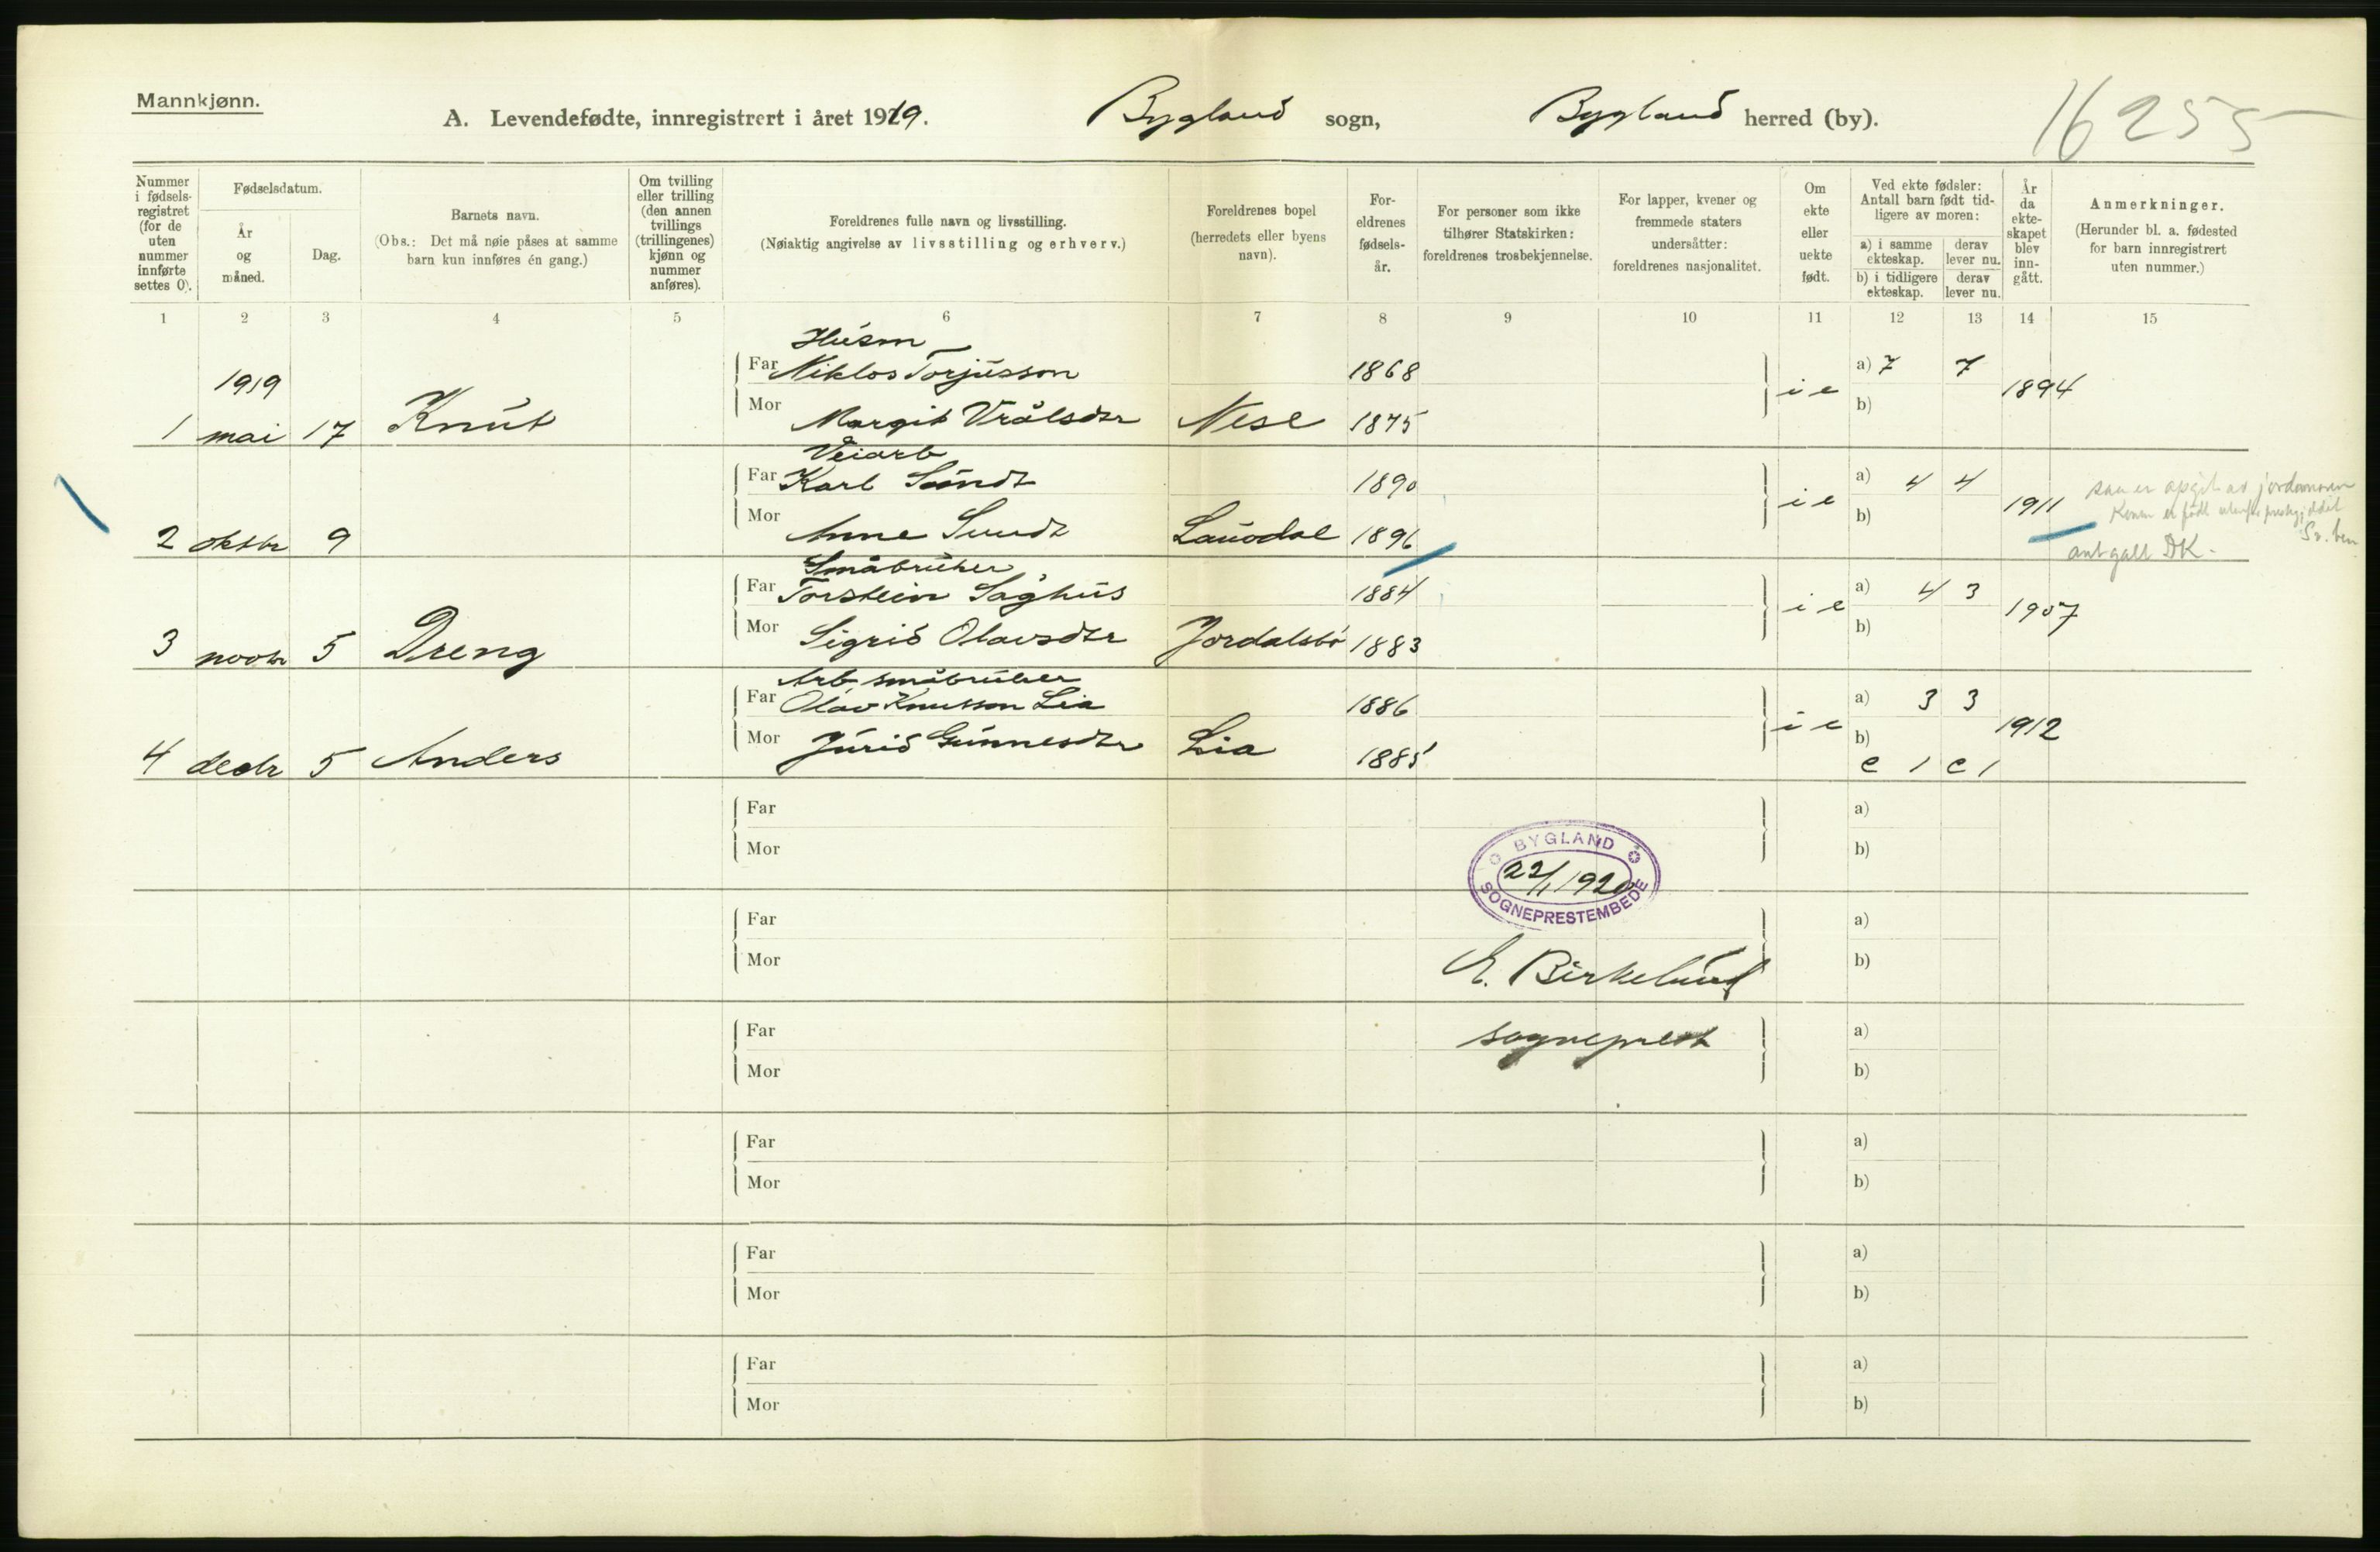 Mannkjønn.
A. Levendefødte, innregistrert i året 1919. Bygland sogn, Bygland herred (by). 16255
Nummer i fødselsregistret (for de uten nummer innførte settes 0).
Fødselsdatum.
År og måned.
Dag.
Barnets navn.
(Obs.: Det må nøie påses at samme barn kun innføres én gang.)
Om tvilling eller trilling (den annen tvillings (trillingenes) kjønn og nummer anføres).
Foreldrenes fulle navn og livsstilling.
(Nøiaktig angivelse av livsstilling og erhverv.)
Foreldrenes bopel (herredets eller byens navn).
Foreldrenes fødselsår.
For personer som ikke tilhører Statskirken: foreldrenes trosbekjennelse.
For lapper, kvener og fremmede staters undersåtter: foreldrenes nasjonalitet.
Om ekte eller uekte født.
Ved ekte fødsler: Antall barn født tidligere av moren:
a) i samme ekteskap. derav lever nu.
b) i tidligere ekteskap. derav lever nu.
År da ekteskapet blev inngått.
Anmerkninger.
(Herunder bl. a. fødested for barn innregistrert uten nummer.)
1 2 3 4 5 6 7 8 9 10 11 12 13 14 15
Husm
1919 Far Niklos Torjusson 1868 i e a) 7 7 1894
1 mai 17 Knut Mor Margit Vrålsdtr Nese 1875 b)
Veiarb
Far Karl Sundt 1890 i e a) 4 4 1911
2 oktbr 9 Mor Anne Sundt Lauvdal 1896 b)
ant gall DK.
Småbruker
Far Torstein Saghus 1884 i e a) 4 3 1907
3 novbr 5 Dreng Mor Sigrid Olavsdtr Jordalsbø 1883 b)
Arb. småbruker
Far Olav Knutson Lia 1886 i e a) 3 3 1912
4 decbr 5 Anders Mor Jurid Gunnesdtr Lia 1885 b)
c 1 c 1
Far a)
Mor b)
BYGLAND
22/1 1920
SOGNEPRESTEMBEDE
Far a)
Mor b)
E. Birkelund
Far sogneprest a)
Mor b)
Far a)
Mor b)
Far a)
Mor b)
Far a)
Mor b)